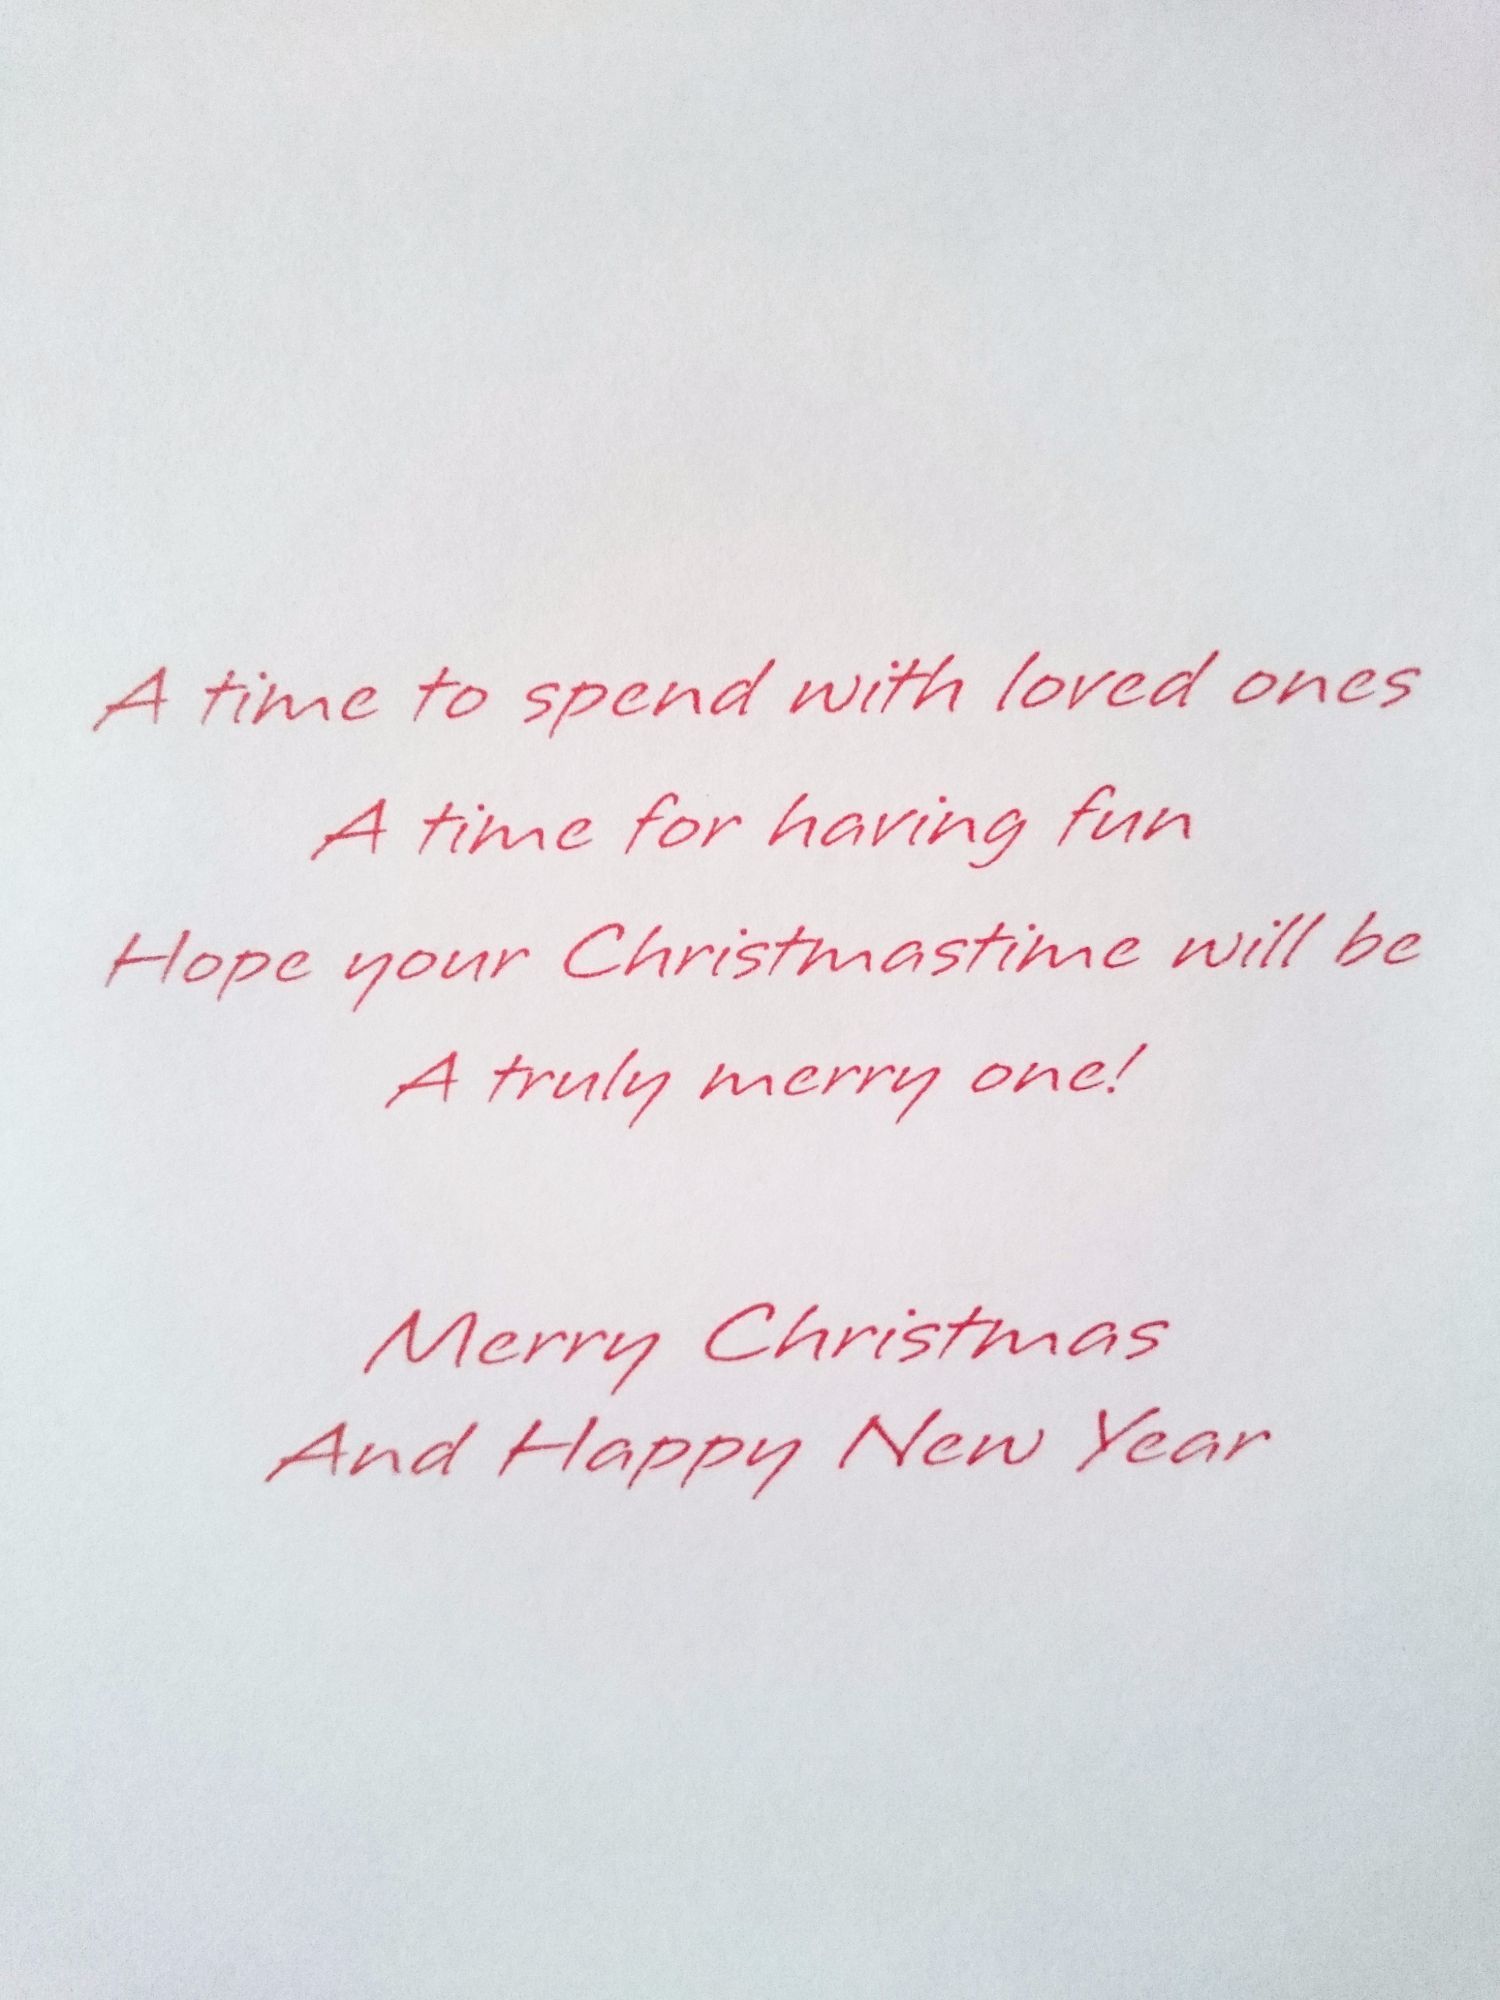 A time to spend with loved ones
A time for having fun
Hope your Christmastime will be
A truly merry one!
Merry Christmas
And Happy New Year